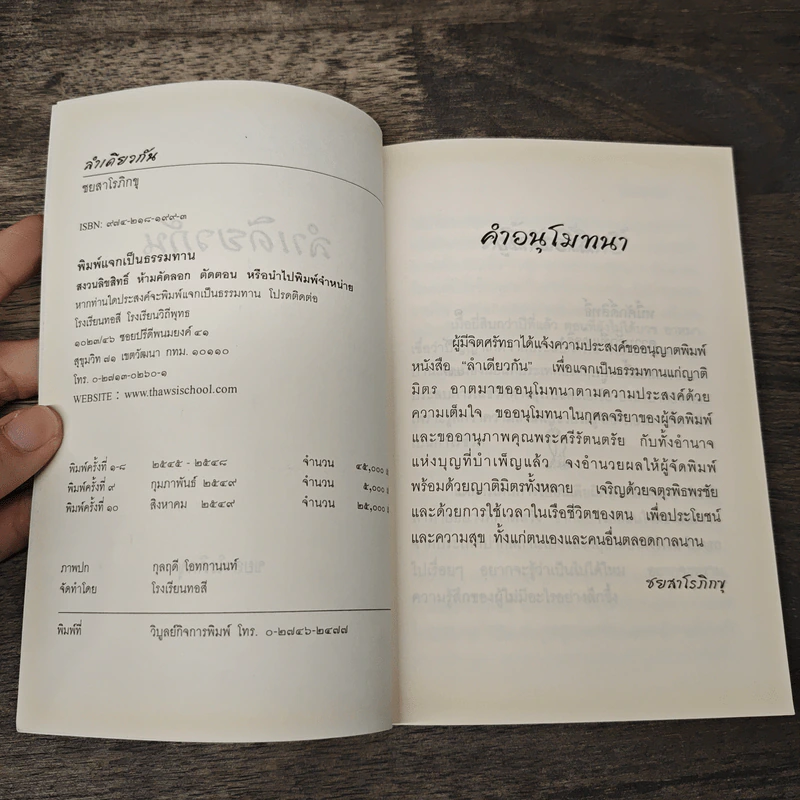 ลำเดียวกัน
ชยสาโรภิกขุ
ISBN: ๙๗๔-๒๑๘-๑๙๙-๓
พิมพ์แจกเป็นธรรมทาน
สงวนลิขสิทธิ์ ห้ามคัดลอก ตัดตอน หรือนำไปพิมพ์จำหน่าย
หากท่านใดประสงค์จะพิมพ์แจกเป็นธรรมทาน โปรดติดต่อ
โรงเรียนทอสี โรงเรียนวิถีพุทธ
๑๐๒๓/๔๖ ซอยปรีดีพนมยงค์ ๔๑
สุขุมวิท ๗๑ เขตวัฒนา กทม. ๑๐๑๑๐
โทร. ๐-๒๗๑๓-๐๒๖๐-๑
WEBSITE : www.thawsischool.com
พิมพ์ครั้งที่ ๑-๘ ๒๕๔๕ - ๒๕๔๘ จำนวน ๔๕,๐๐๐
พิมพ์ครั้งที่ ๙ กุมภาพันธ์ ๒๕๔๙ จำนวน ๕,๐๐๐
พิมพ์ครั้งที่ ๑๐ สิงหาคม ๒๕๔๙ จำนวน ๒๕,๐๐๐
ภาพปก กุลฤดี โอทกานนท์
จัดทำโดย โรงเรียนทอสี
พิมพ์ที่ วิบูลย์กิจการพิมพ์ โทร. ๐-๒๗๔๖-๒๔๗๗
คำอนุโมทนา
ผู้มีจิตศรัทธาได้แจ้งความประสงค์ขออนุญาตพิมพ์
หนังสือ "ลำเดียวกัน" เพื่อแจกเป็นธรรมทานแก่ญาติ
มิตร อาตมาขออนุโมทนาตามความประสงค์ด้วย
ความเต็มใจ ขออนุโมทนาในกุศลจริยาของผู้จัดพิมพ์
และขออานุภาพคุณพระศรีรัตนตรัย กับทั้งอำนาจ
แห่งบุญที่บำเพ็ญแล้ว จงอำนวยผลให้ผู้จัดพิมพ์
พร้อมด้วยญาติมิตรทั้งหลาย เจริญด้วยจตุรพิธพรชัย
และด้วยการใช้เวลาในเรือชีวิตของตน เพื่อประโยชน์
และความสุข ทั้งแก่ตนเองและคนอื่นตลอดกาลนาน
ชยสาโรภิกขุ